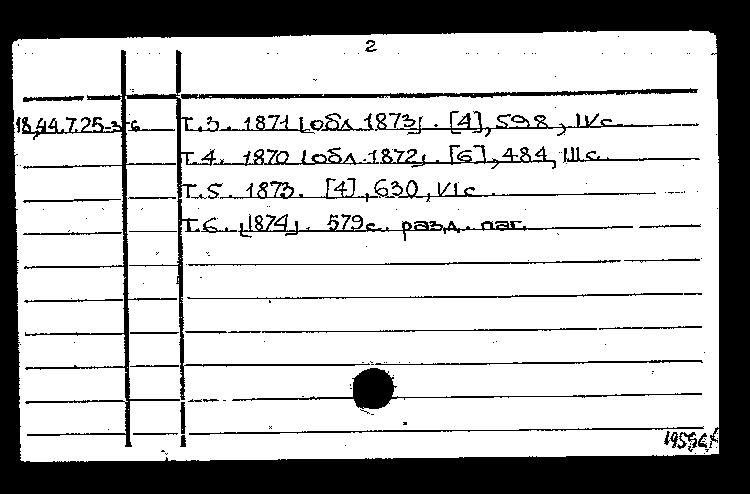 2
18.44.7.25-3-6 Т.3. 1871 [обл. 1873]. [4], 598, IV с.
Т.4. 1870 [обл. 1872]. [6], 484, III с.
Т.5. 1873. [4], 630, VI с.
Т.6. [1874]. 579 с. разд. паг.